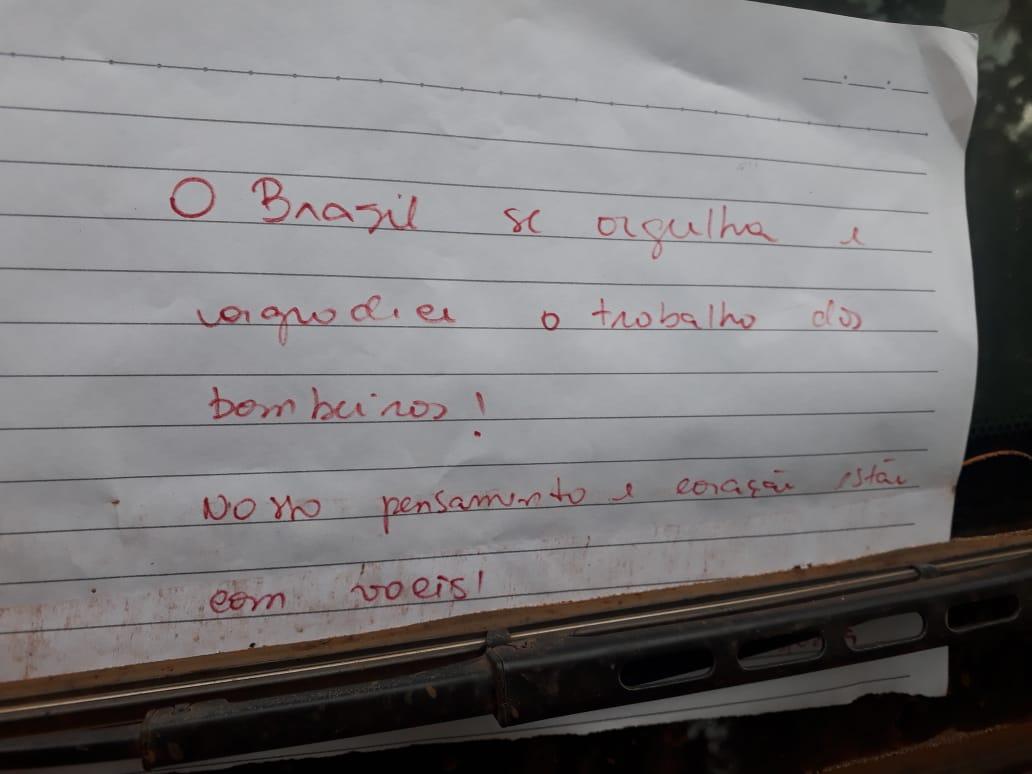 O Brasil se orgulha e
o trabalho dos
bombeiros!
Nosso pensamento e coração estão
com voceis!